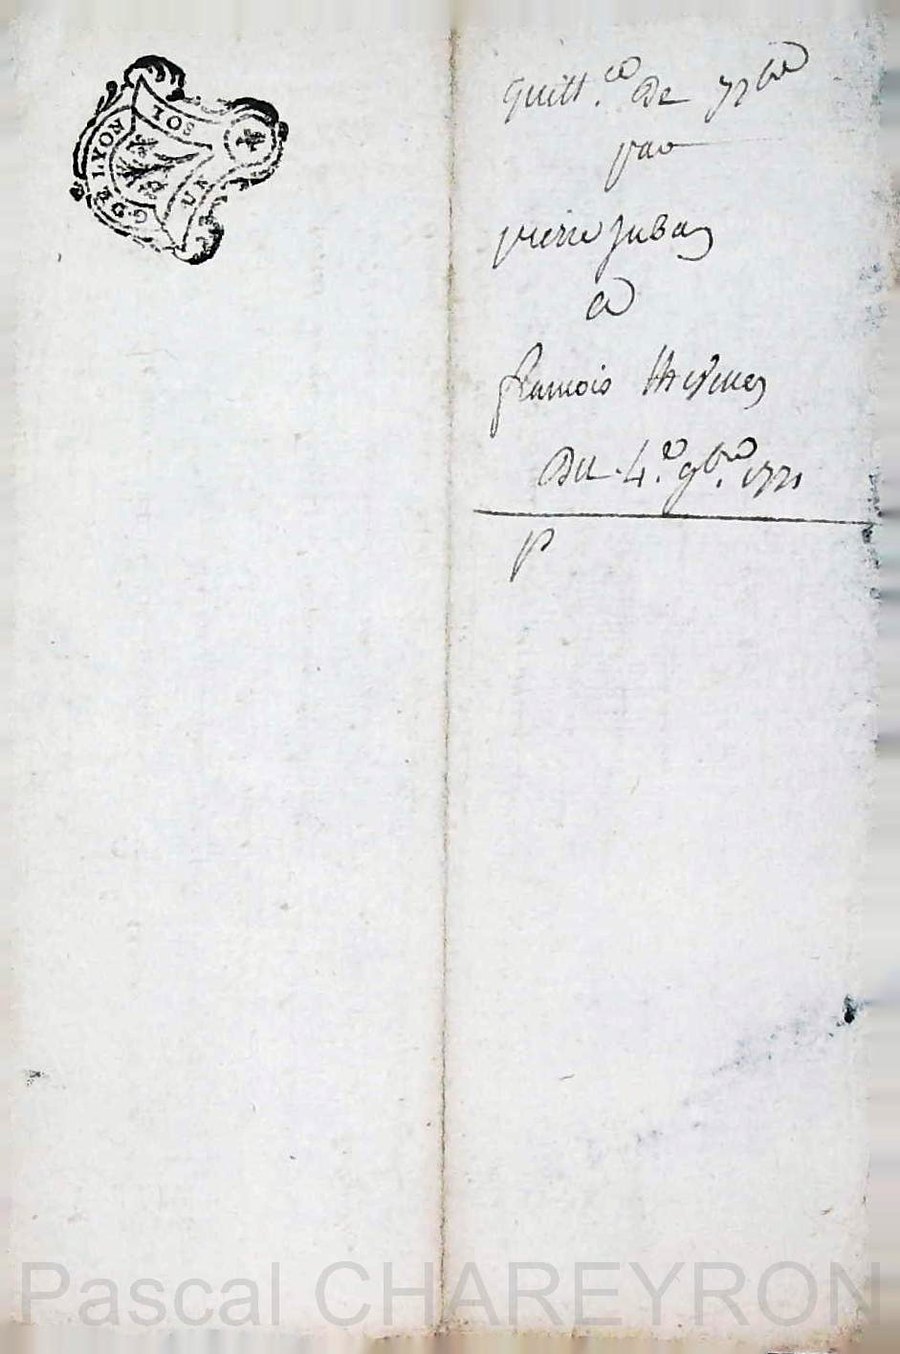 G. DE LYON
UN SOL
Quitt.ce De 77ₗₜ
par
pierre Juban
a
francois
Du 4.e 9bre. 1771
P
Pascal CHAREYRON